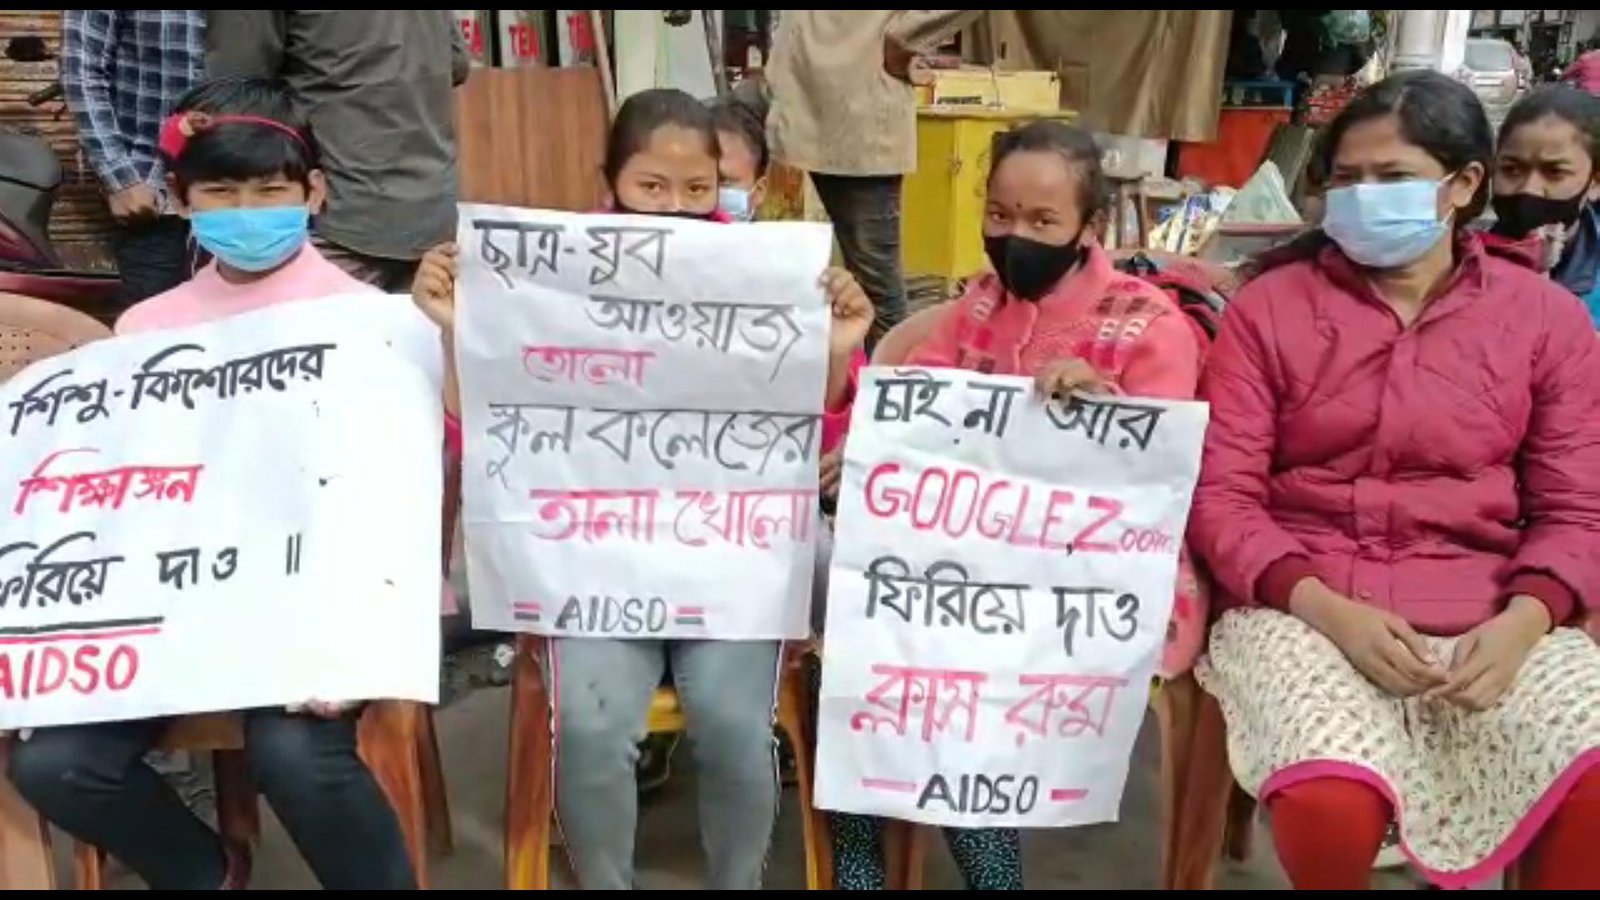 TEA
TEA
TEA
শিশু-কিশোরদের
শিক্ষাঙ্গন
ফিরিয়ে দাও ॥
AIDSO
ছাত্র-যুব
আওয়াজ
তোলো
স্কুল কলেজের
তালা খোলো
= AIDSO =
চাই না আর
GOOGLE, Zoom
ফিরিয়ে দাও
ক্লাস রুম
— AIDSO —